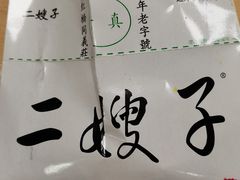 二嫂子
真
年老字號
二嫂子®